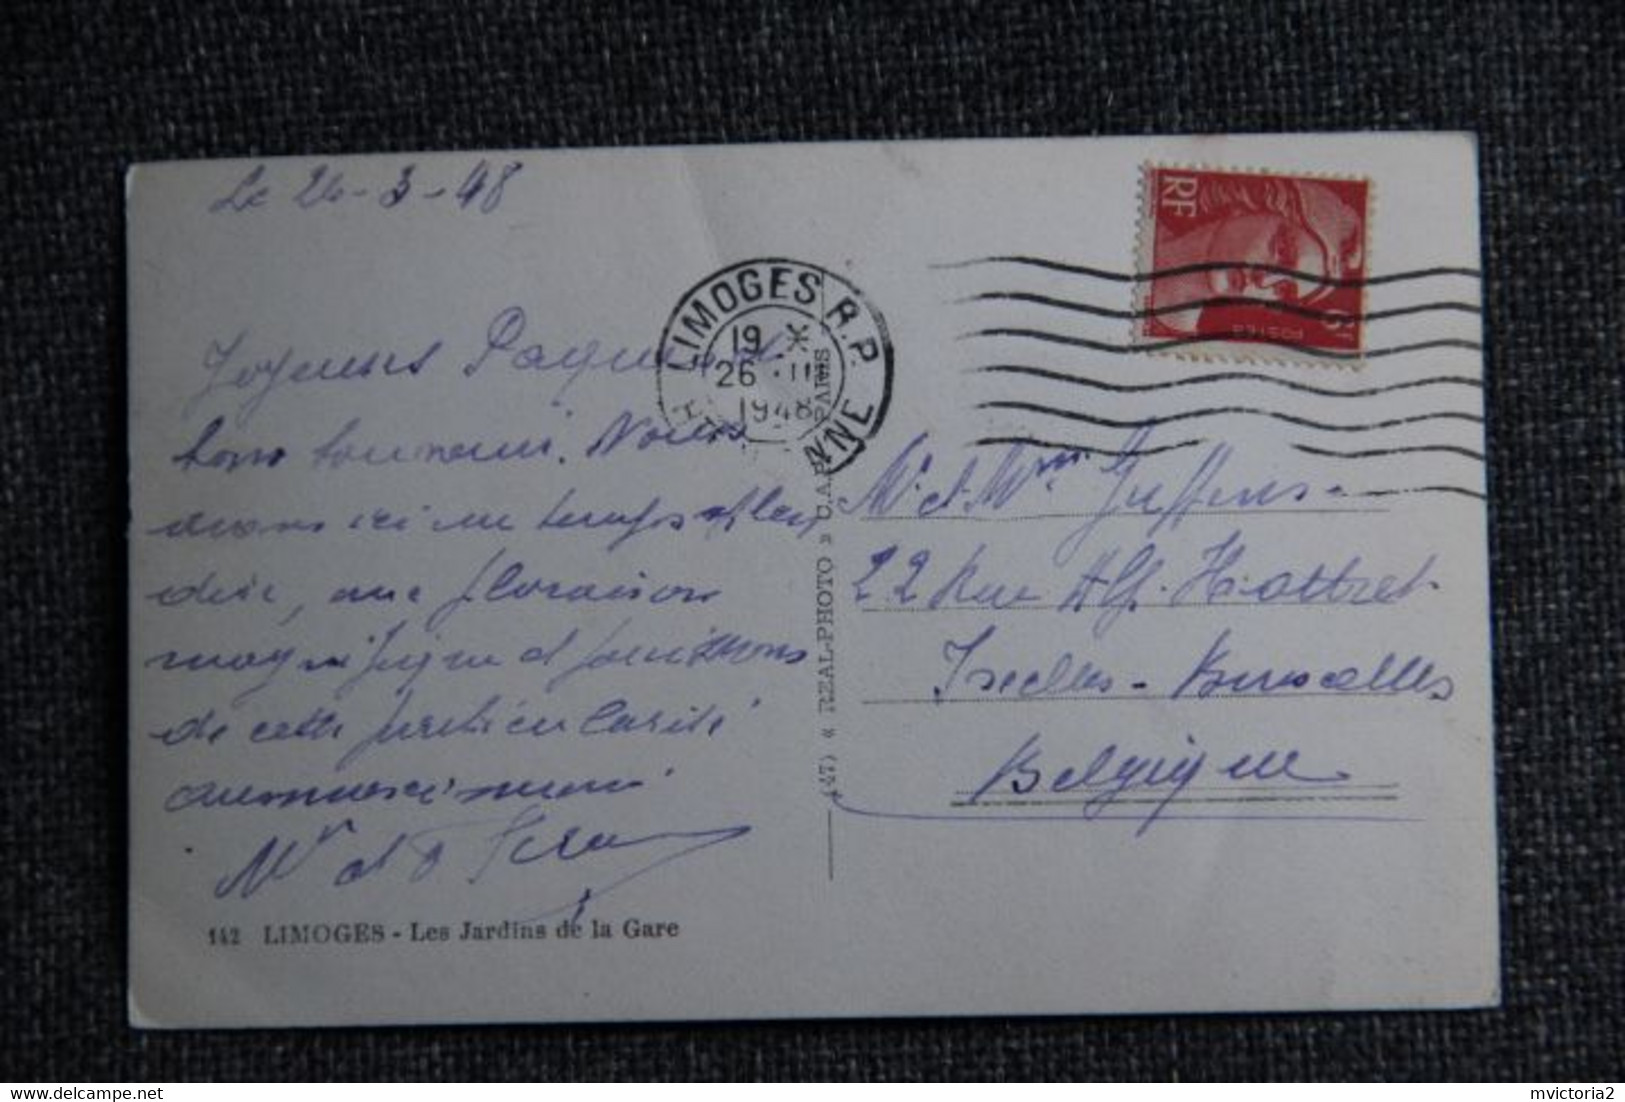 Le 26-3-48
Joyeuses Pâques
bons souvenirs. Nous
avons ici un temps
dire, une floraison
magnifique et jouissons
de cette particularité
Mr et
142 LIMOGES - Les Jardins de la Gare
LIMOGES R.P.
19 *
26 . II
1948
H NNE
(47) « REAL-PHOTO » C.A.P PARIS
RF
POSTES
6F
Mr et Mme
22 Rue Alf. Hottret
Ixelles - Bruxelles
Belgique
mvictoria2